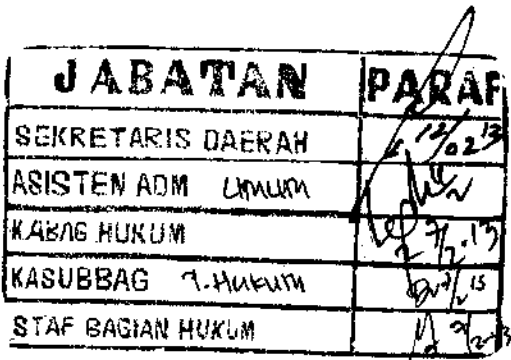 JABATAN PARAF
SEKRETARIS DAERAH 12/02 13
ASISTEN ADM Umum
KABAG HUKUM 7/2.13
KASUBBAG HUKUM
STAF BAGIAN HUKUM